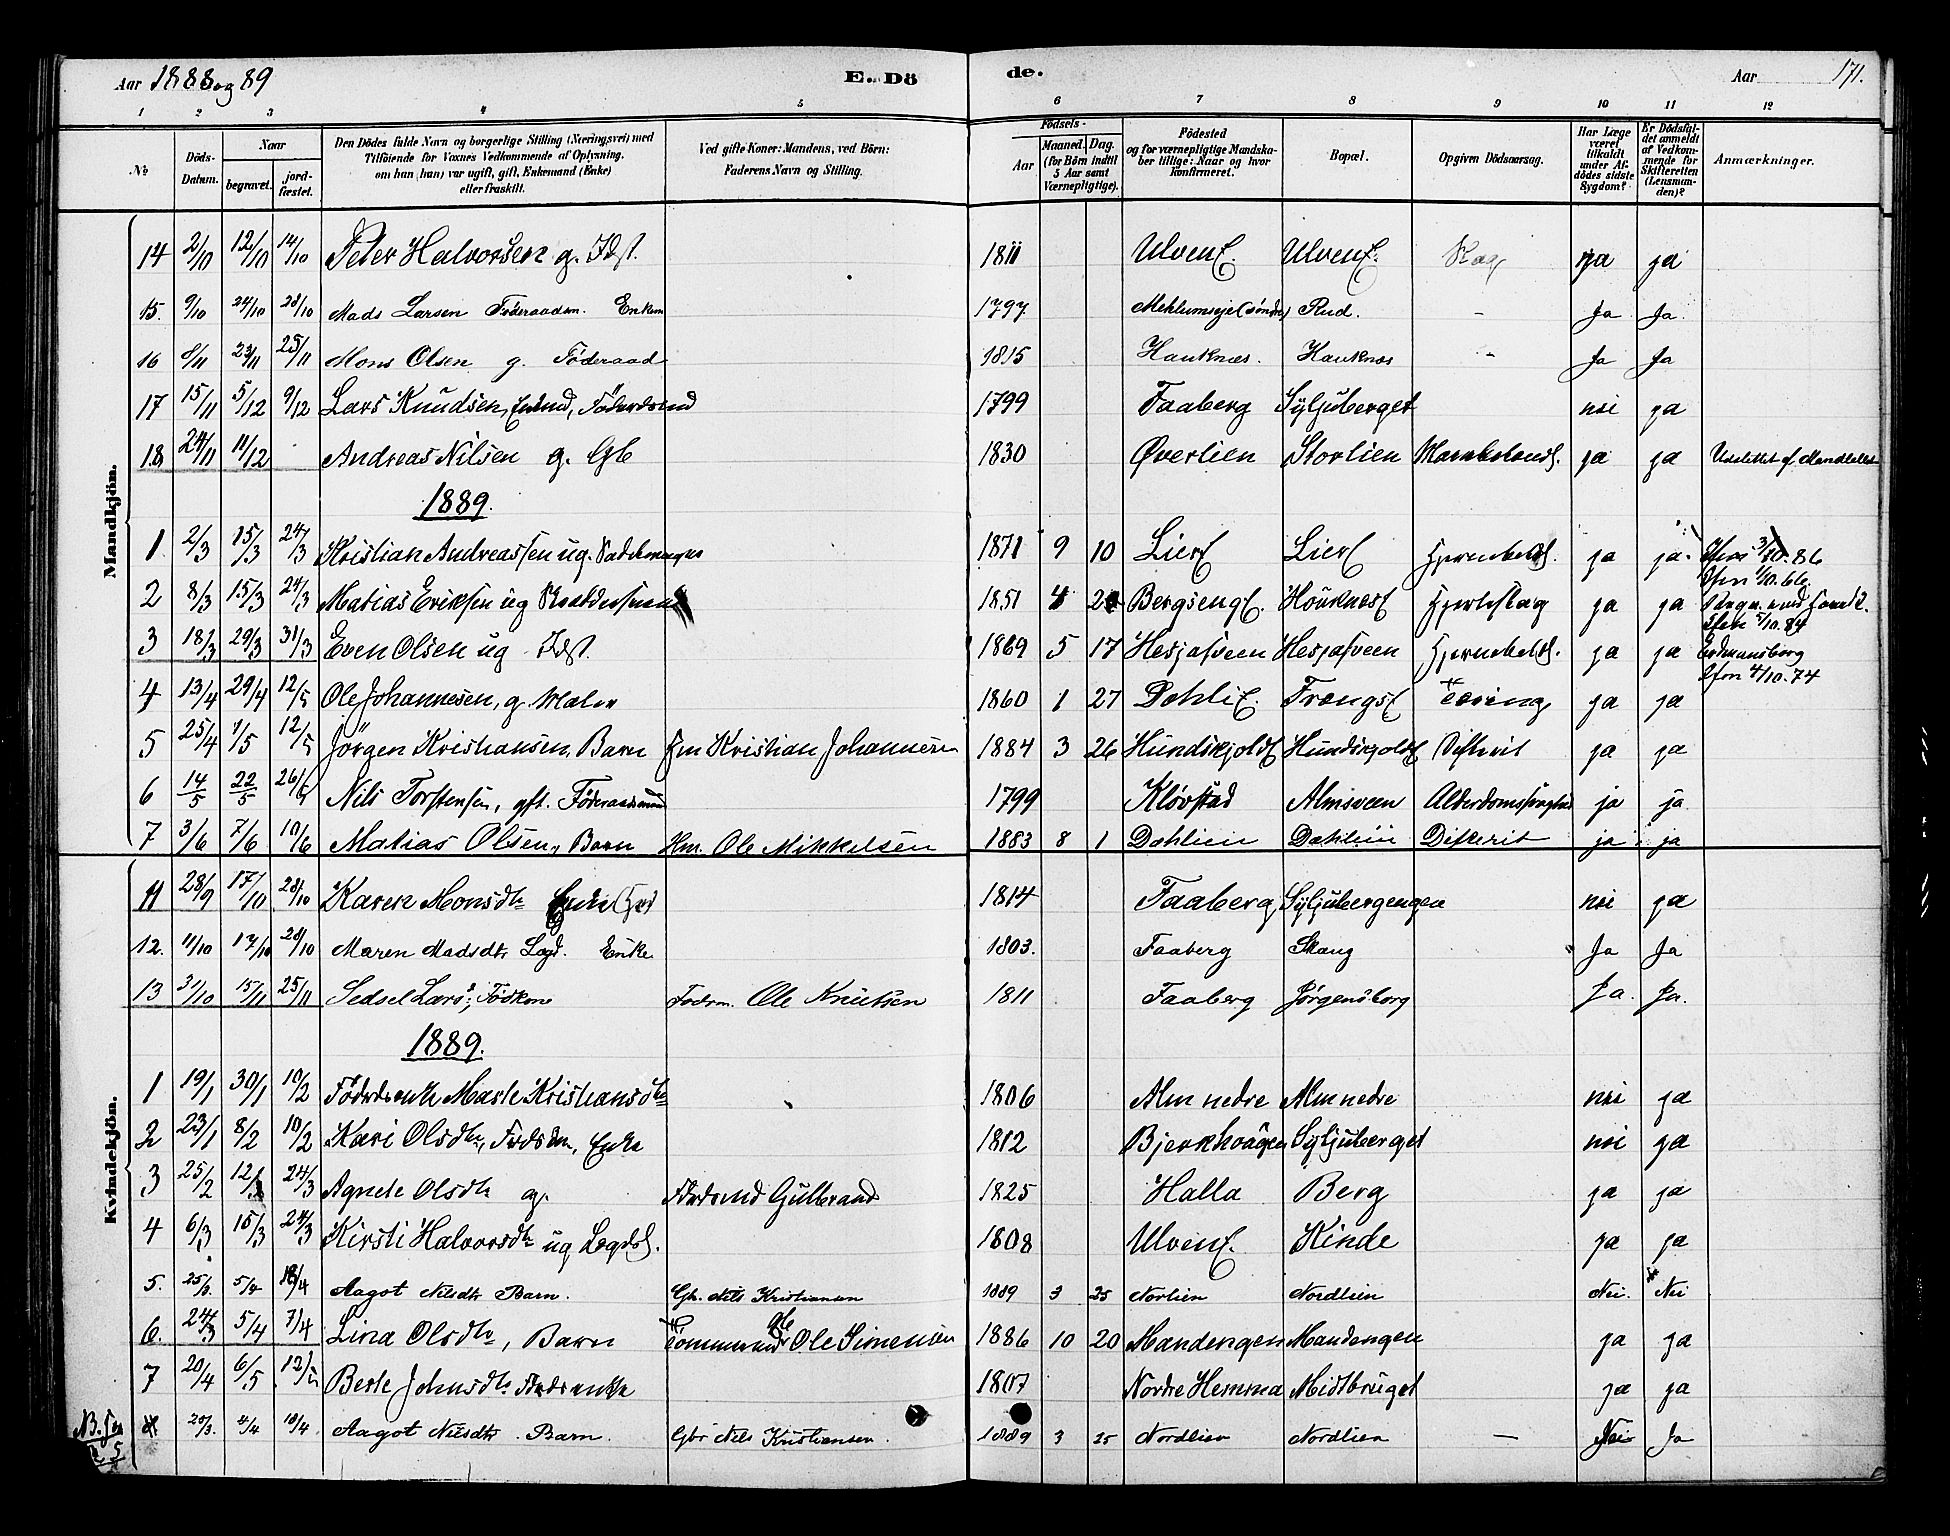 Aar 1888 og 89 E. Dö de. Aar 171.
1 2 3 4 5 6 7 8 9 10 11 12
No Döds-Datum. Naar begravet. jordfæstet. Den Dödes fulde Navn og borgerlige Stilling (Næringsvei) med Tilföiende for Voxnes Vedkommende af Oplysning, om han (hun) var ugift, gift, Enkemand (Enke) eller fraskilt. Ved gifte Koner: Mandens, ved Börn: Faderens Navn og Stilling. Födsels- Aar Maaned. Dag. (for Börn indtil 5 Aar samt Værnepligtige). Födested og for værnepligtige Mandskaber tillige: Naar og hvor konfirmeret. Bopæl. Opgiven Dödsaarsag. Har Læge været tilkaldt under Afdödes sidste Sygdom? Er Dödsfaldet anmeldt af Vedkommende for Skifteretten (Lensmanden)? Anmærkninger.
Mandkjön.
14 2/10 12/10 14/10 Peter Halvorsen g. Idst. 1811 Ulven Ulven ja ja
15. 9/10 24/10 28/10 Mads Larsen Föderaadsm. Enkem 1797 Mehlumseje (söndre) Rud. - Ja Ja.
16 8/11 23/11 25/11 Mons Olsen g. Föderaad 1815 Hauknæs. Hauknæs - Ja Ja
17 15/11 5/12 9/12 Lars Knudsen, Enkmd, Föderdsmd 1799 Faaberg Syljuberget nei ja
18 24/11 11/12 Andreas Nilsen g. Gb 1830 Øverlien Storlien ja ja
1889.
1. 2/3 15/3 24/3 Kristian Andreassen ug. 1871 9 10 Lier Lier ja ja. 3/10.86
2 8/3 15/3 24/3 Matias Eriksen ug 1851 4 Bergseng Houknes Hjerteslag ja ja 1/10.66
3 18/3 29/3 31/3 Even Olsen ug Idst. 1869 5 17 Hesjasveen Hesjasveen ja ja 5/10.84
4 13/4 29/4 12/5 Ole Johannesen, g. Maler 1860 1 27 Dahli Trængs Tæring ja ja 4/10.74
5 25/4 1/5 12/5 Jörgen Kristiansen, Barn Hm Kristian Johannesen 1884 3 26 Hundskjold Hundskjold Difterit ja ja
6 14/5 22/5 26/5 Nils Torstensen, gft. Föderaadsmand 1799 Klövstad Almsveen Alderdomssvaghed ja ja
7 3/6 7/6 10/6 Matias Olsen, Barn Hm. Ole Mikkelsen 1883 8 1 Dahlien Dahlien Difterit ja ja
Kvindekjön.
11 28/9 17/10 28/10 Karen Monsdtr Enke 1814 Faaberg Syljubergengen nei ja
12. 11/10 17/10 28/10 Maren Madsdtr Lægd. Enke 1803. Faaberg Skaug Ja Ja
13 31/10 15/11 25/11 Sedsel Larsd, Födkone Födrm. Ole Knutsen 1811 Faaberg Jörgensborg Ja. Ja.
1889.
1 19/1 30/1 10/2 Föderdsenke Marte Kristiansdtr 1806 Alm nedre Alm nedre nei ja
2 23/1 8/2 10/2 Kari Olsdtr, Födsdkn, Enke 1812 Bjerkhaagen Syljuberget nei ja
3 25/2 12/3 24/3 Agnete Olsdtr g. Födrdsmd Gulbrand 1825 Halla Berg ja ja
4 6/3 15/3 24/3 Kirsti Halvorsdtr ug Lægdsl. 1808 Ulven Kinde ja ja
5. 25/3. 5/4 18/4 Aagot Nilsdtr Barn. Gb. Nils Kristiansen 1889 3 25 Norlien Nordlien Nei. Nei
6. 24/3 5/4 7/4 Lina Olsdtr, Barn Tömmermd Ole Simensen 1886 10 20 Mandengen Mandengen ja ja
7 20/4 6/5 12/5 Berte Johnsdtr Födrdsenke 1807 Nordre Hemma Midtbruget ja ja
20/3. 4/4 18/4 Aagot Nilsdtr. Barn. Gbr Nils Kristiansen. 1889 3 25 Nordlien Nordlien — Nei Ja